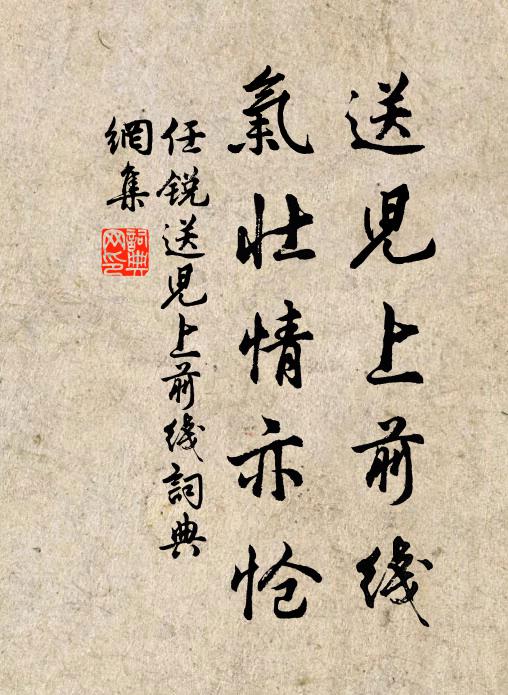 送兒上前线
氣壯情亦怆
任锐送兒上前线詞典
網集
詞典
网印